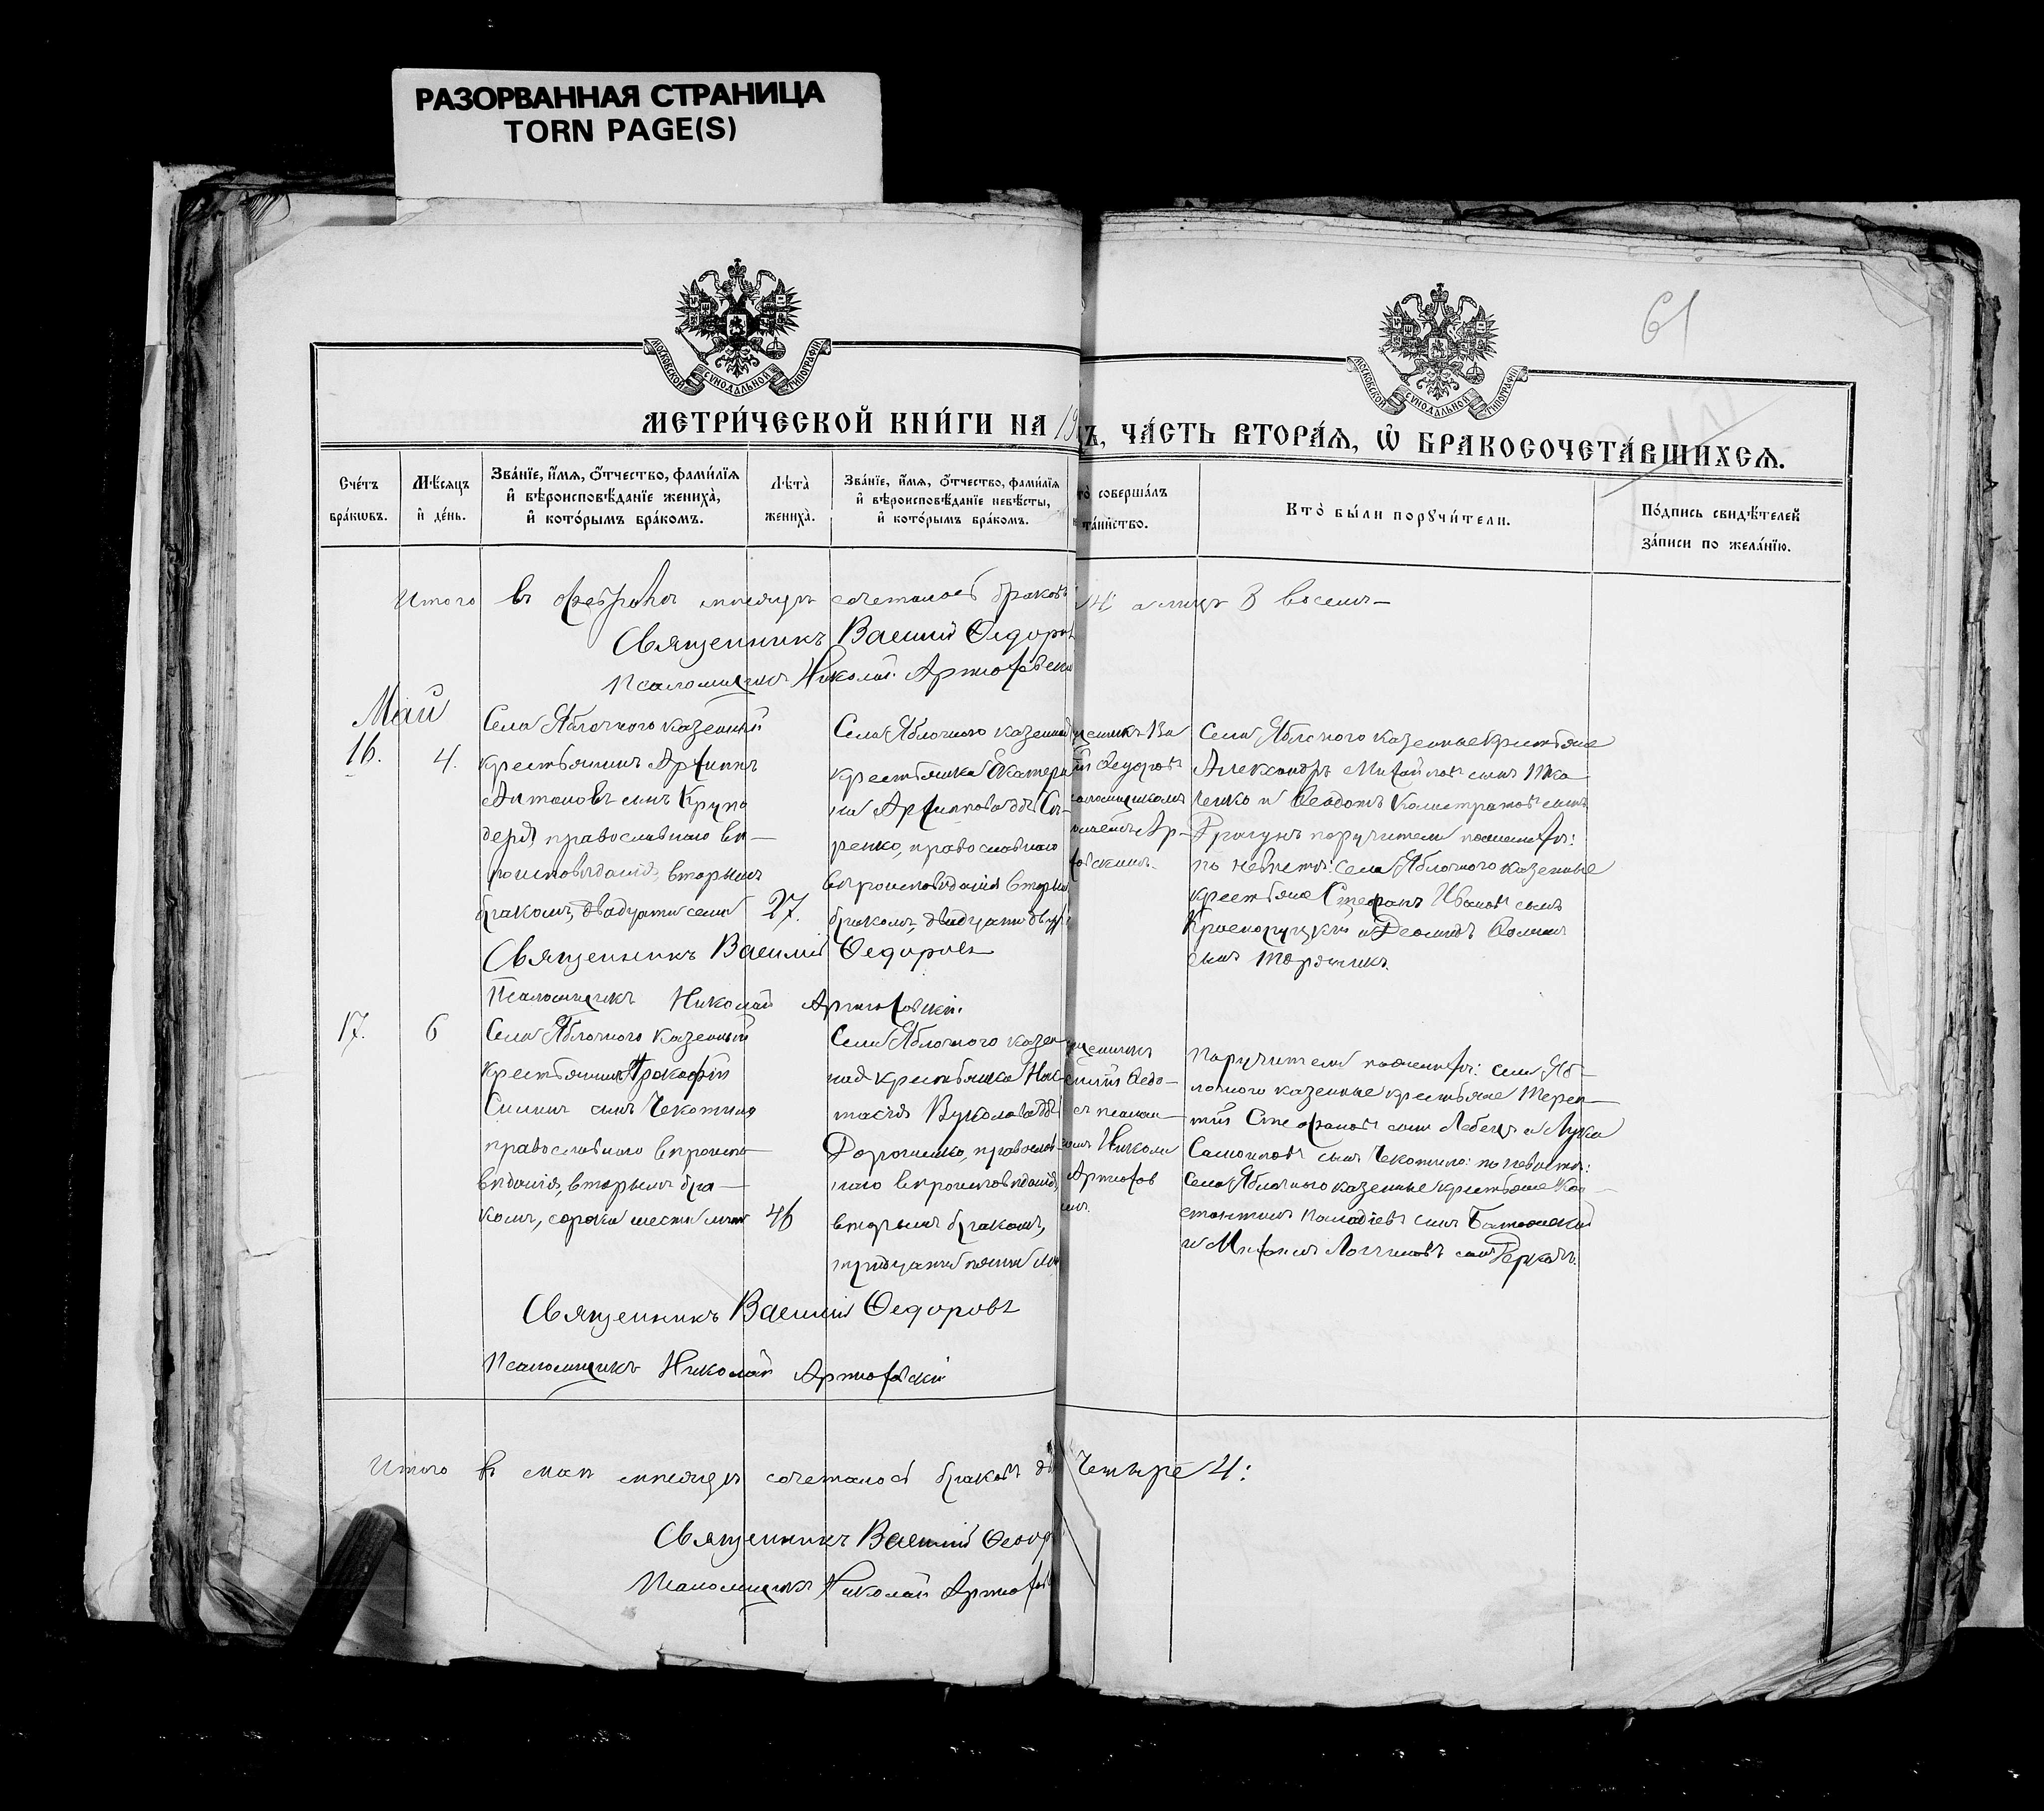 РАЗОРВАННАЯ СТРАНИЦА
TORN PAGE(S)
МОСКОВСКОЙ СУНОДАЛЬНОЙ ТИПОГРАФІИ
МОСКОВСКОЙ СУНОДАЛЬНОЙ ТИПОГРАФІИ
61
МЕТРИ́ЧЕСКОЙ КНИ́ГИ НА 19
Ъ, ЧА́СТЬ ВТОРА́Ѧ, Ѡ҆ БРАКОСОЧЕТА́ВШИХСѦ.
Сче́тъ бра́кѡвъ.
Мѣ́сяцъ и҆ де́нь.
Зва́нїе, и҆́мѧ, ѻ҆́тчество, фами́лїѧ
и҆ вѣроисповѣ́данїе жениха̀,
и҆ кото́рымъ бра́комъ.
Лѣта̀ жениха̀.
Зва́нїе, и҆́мѧ, ѻ҆́тчество, фами́лїѧ
и҆ вѣроисповѣ́данїе невѣ́сты,
и҆ кото́рымъ бра́комъ.
то̀ соверша́лъ
та́инство.
Кто̀ бы́ли порꙋчи́тели.
По́дпись свидѣ́телей
за́писи по жела́нїю.
Итого въ февралѣ мѣсяцѣ сочеталось браковъ 4 а лицъ 8 восемь
Священникъ Василій Ѳедоров
Псаломщикъ Николай Артюховскі
Май
16.
4.
Села Яблочного казенный
крестьянинъ Архиппъ
Антоновъ сынъ Крупо
деря, православнаго вѣ—
роисповѣданія, вторымъ
бракомъ, двадцати семи
27.
Села Яблочного казенная
крестьянка Екатери
на Архиппова дочь
ренко, православнаго
вѣроисповѣданія вторы
бракомъ, двадцати двух
щенникъ Ва
ій Ѳедоровъ
саломщикомъ
Ар—
ховскимъ.
Села Яблочного казенные крестьяне
Александръ Михайловъ сынъ Тка
ченко и Ѳеодотъ Калистратовъ сынъ
поручители по женихѣ:
по невѣстѣ: села Яблочного казенные
крестьяне Стефанъ Ивановъ сынъ
Краснорутцкій и Ѳомин
сынъ
Священникъ Василій Ѳедоровъ
Псаломщикъ Николай Артюховскій.
17.
6
Села Яблочного казенный
крестьянинъ Прокофій
Силинъ сынъ Чекотило
православнаго вѣроиспо—
вѣданія, вторымъ бра—
комъ, сорока шести лѣтъ
46
Села Яблочного казен
ная крестьянка Нас
тасія Вуколова дочь
Дорошенко, православ
наго вѣроисповѣданія,
вторымъ бракомъ,
тридцати пяти лѣ
щенникъ
силій Ѳедо—
съ псалом—
комъ Николае
Артюхов
Поручители по женихѣ: села Яб—
лочного казенные крестьяне Терен—
тій Стефановъ сынъ Лебедь и Лука
Самоиловъ сынъ Чекотило: по невѣстѣ:
Села Яблочного казенные крестьяне Кон—
стантинъ Паладіевъ сынъ
и Михаилъ Логиновъ сынъ Деркачъ.
Священникъ Василій Ѳедоровъ
Псаломщикъ Николай Артюховскій
Итого въ маѣ мѣсяцѣ сочеталось браковъ дв Четыре 4:
Священникъ Василій Ѳедор
Псаломщикъ Николай Артюхов